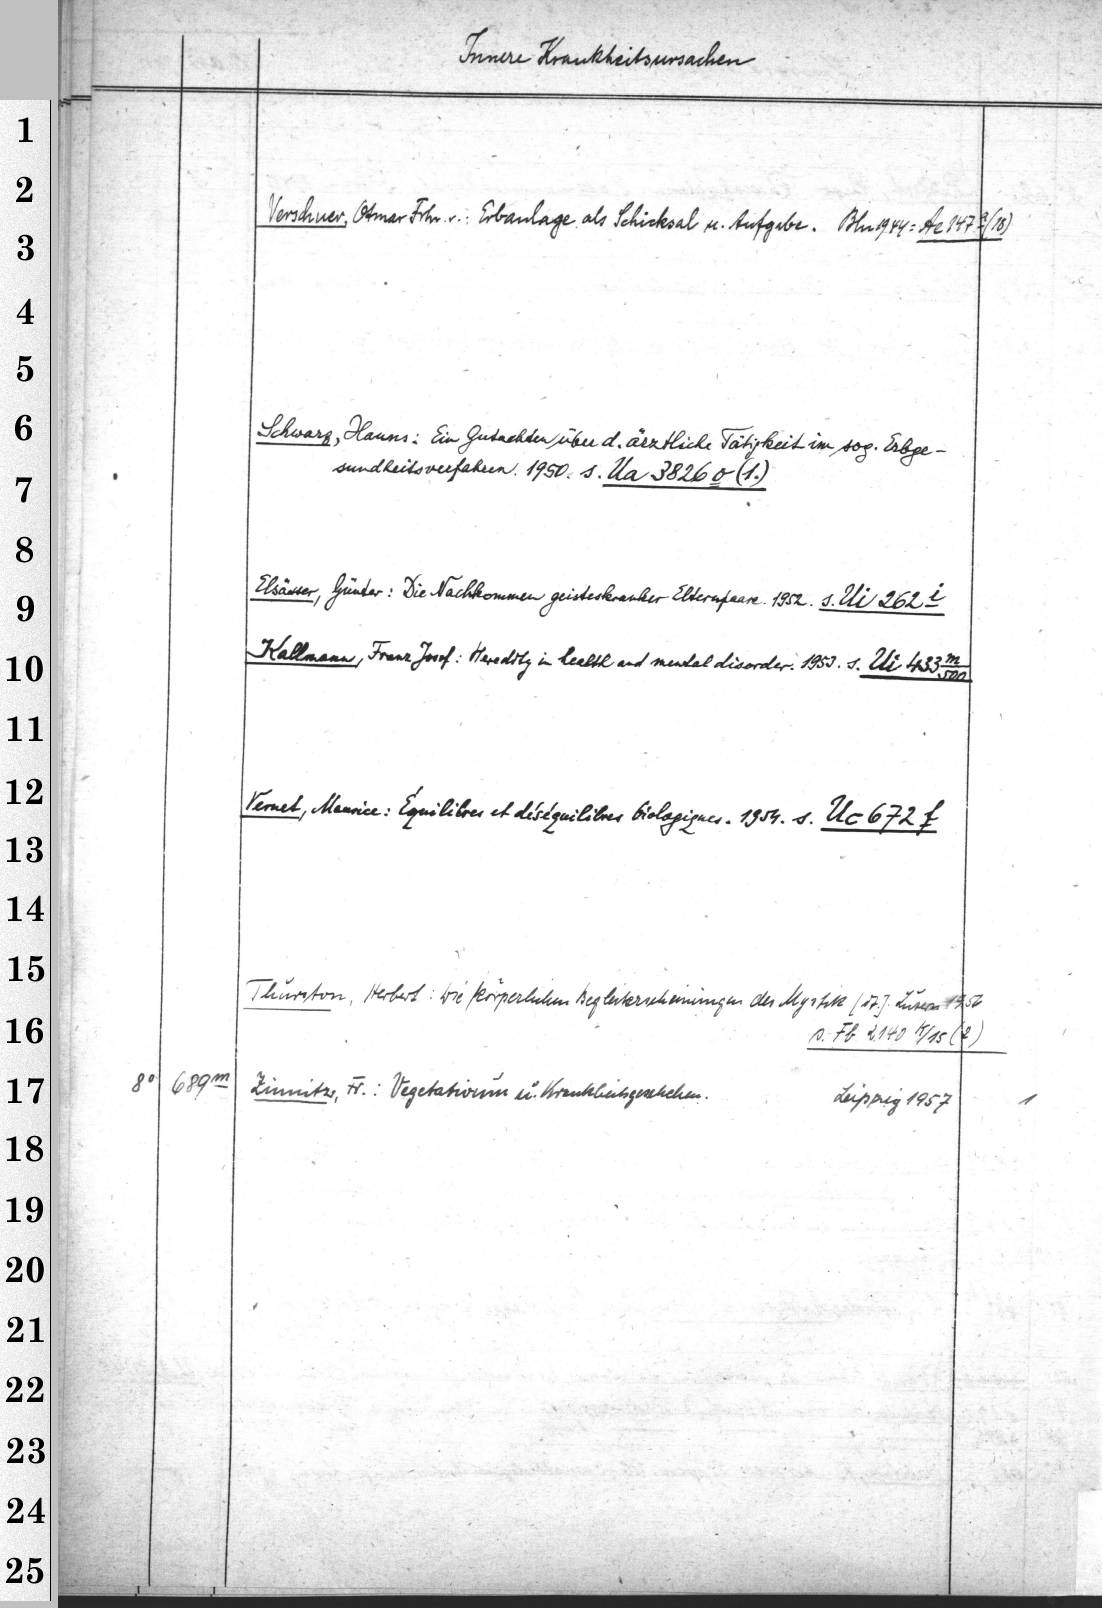 Innere Krankheitsursachen
1
2
Verschuer, Otmar Frhr. v.: Erbanlage als Schicksal u. Aufgabe. Bln 1944 = Ac 147 (18)
3
4
5
6
Schwarz, Hanns: Ein Gutachten über d. ärztliche Tätigkeit im sog. Erbge-
sundheitsverfahren. 1950. s. Ua 3826 o (1.)
7
8
Elsässer, Günter: Die Nachkommen geisteskranker Elternpaare. 1952. s. Ui 262 i
9
Kallmann, Franz Josef: Heredity in health and mental disorder. 1953. s. Ui 433 m/500
10
11
12
Vernet, Maurice: Équilibres et déséquilibres biologiques. 1954. s. Uc 672 f
13
14
15
Thurston, Herbert: Die körperlichen Begleiterscheinungen der Mystik [dt.] Luzern 1956
16
s. Fb 2140 k/15 (2)
17
8° 689 m Zinnitz, Fr.: Vegetativum u. Krankheitsgeschehen. Leipzig 1957 1
18
19
20
21
22
23
24
25